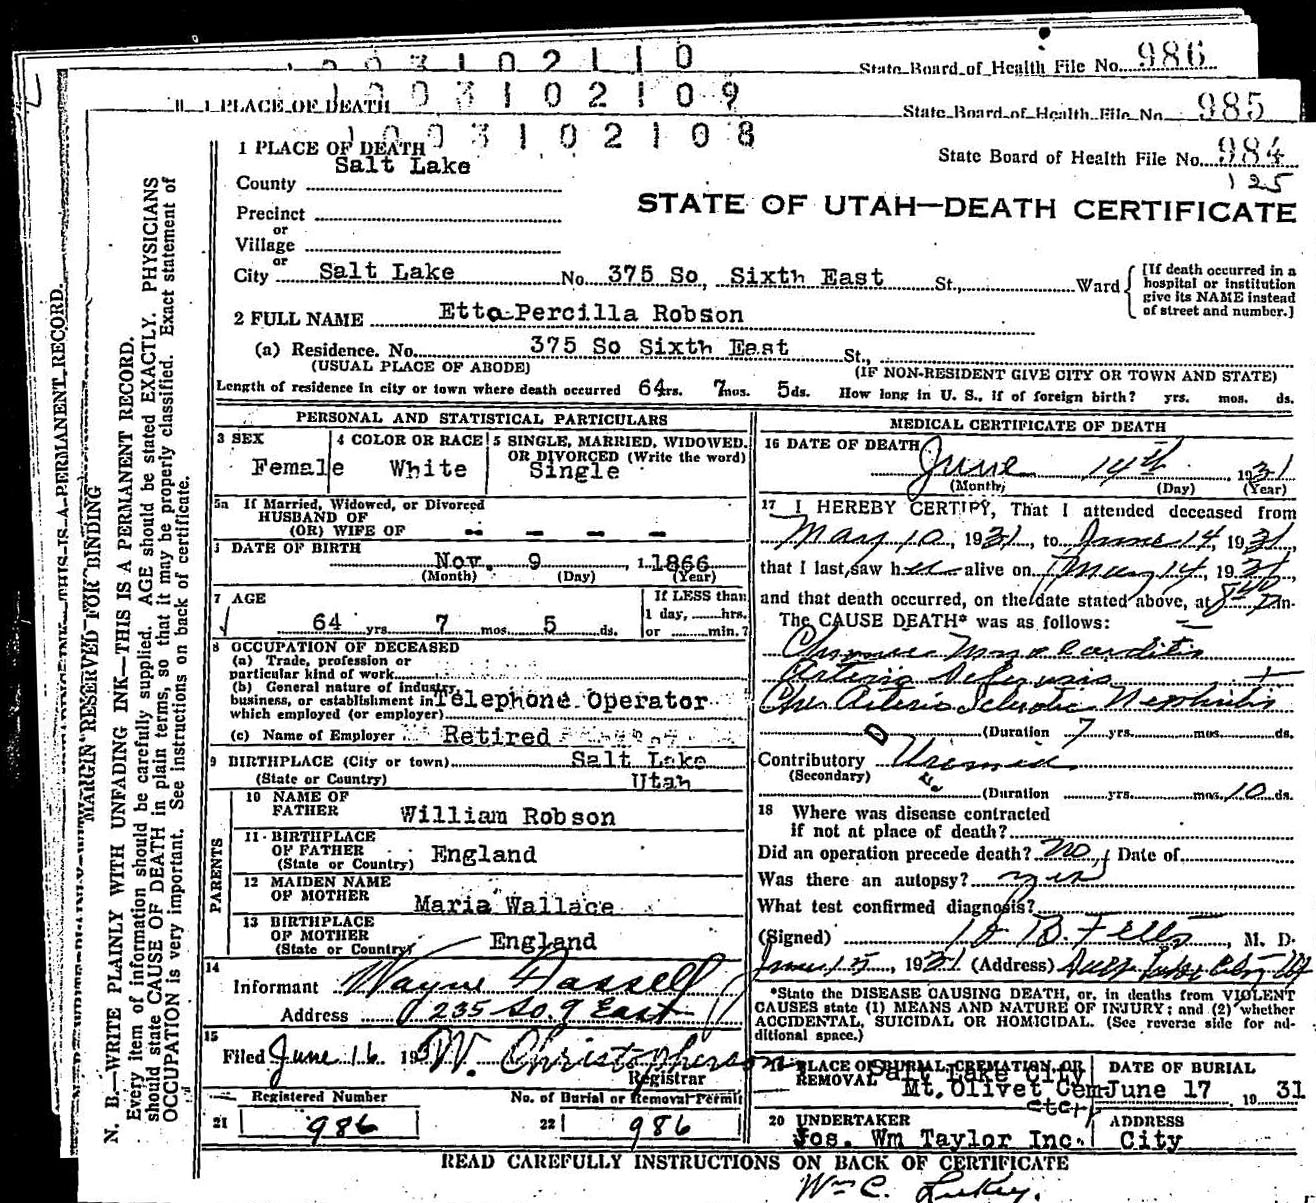 1 0 0 3 1 0 2 1 1 0
State Board of Health File No. 986
1 PLACE OF DEATH 1 0 0 3 1 0 2 1 0 9
State Board of Health File No. 985
1 0 0 3 1 0 2 1 0 8
1 PLACE OF DEATH
State Board of Health File No. 984
125
County Salt Lake
STATE OF UTAH—DEATH CERTIFICATE
Precinct
or
Village
or
City Salt Lake No. 375 So, Sixth East St., Ward
[If death occurred in a hospital or institution give its NAME instead of street and number.]
2 FULL NAME Etta Percilla Robson
(a) Residence. No. 375 So Sixth East St.,
(USUAL PLACE OF ABODE) (IF NON-RESIDENT GIVE CITY OR TOWN AND STATE)
Length of residence in city or town where death occurred 64 yrs. 7 mos. 5 ds. How long in U. S., if of foreign birth? yrs. mos. ds.
PERSONAL AND STATISTICAL PARTICULARS
3 SEX Female
4 COLOR OR RACE White
5 SINGLE, MARRIED, WIDOWED, OR DIVORCED (Write the word) Single
5a If Married, Widowed, or Divorced
HUSBAND OF
(OR) WIFE OF - - - -
DATE OF BIRTH Nov. 9, 1866
(Month) (Day) (Year)
7 AGE 64 yrs 7 mos 5 ds.
If LESS than
1 day, hrs.
or min.?
8 OCCUPATION OF DECEASED
(a) Trade, profession or
particular kind of work
(b) General nature of industry,
business, or establishment in Telephone Operator
which employed (or employer)
(c) Name of Employer Retired
9 BIRTHPLACE (City or town) Salt Lake
(State or Country) Utah
PARENTS
10 NAME OF FATHER William Robson
11 BIRTHPLACE OF FATHER (State or Country) England
12 MAIDEN NAME OF MOTHER Maria Wallace
13 BIRTHPLACE OF MOTHER (State or Country) England
14
Informant Wayne
Address 235 So. 9 East
15
Filed June 16 19 31 W. Christopherson
Registrar
Registered Number No. of Burial or Removal Permit
21 986 22 986
MEDICAL CERTIFICATE OF DEATH
16 DATE OF DEATH June 14th 1931
(Month) (Day) (Year)
17 I HEREBY CERTIFY, That I attended deceased from
May 10, 1931, to June 14, 1931,
that I last saw her alive on 14, 1931,
and that death occurred, on the date stated above, at m.
The CAUSE DEATH* was as follows:
Chronic Myocarditis
Arterio Sclerosis
Chr Arterio Sclerotic Nephritis
(Duration 7 yrs. mos. ds.
Contributory Uremia
(Secondary)
(Duration yrs. mos. 10 ds.
18 Where was disease contracted
if not at place of death?
Did an operation precede death? No, Date of
Was there an autopsy? yes
What test confirmed diagnosis?
(Signed) M. D.
June 15, 1931 (Address) Salt Lake City Ut
*State the DISEASE CAUSING DEATH, or, in deaths from VIOLENT
CAUSES state (1) MEANS AND NATURE OF INJURY; and (2) whether
ACCIDENTAL, SUICIDAL OR HOMICIDAL. (See reverse side for additional space.)
19 PLACE OF BURIAL, CREMATION, OR REMOVAL Salt Lake City
Mt. Olivet Cemetery
DATE OF BURIAL
June 17 19 31
20 UNDERTAKER ADDRESS
Jos. Wm Taylor Inc. City
READ CAREFULLY INSTRUCTIONS ON BACK OF CERTIFICATE
Wm C.
MARGIN RESERVED FOR BINDING
N. B.—WRITE PLAINLY WITH UNFADING INK—THIS IS A PERMANENT RECORD.
Every item of information should be carefully supplied. AGE should be stated EXACTLY. PHYSICIANS
should state CAUSE OF DEATH in plain terms, so that it may be properly classified. Exact statement of
OCCUPATION is very important. See instructions on back of certificate.